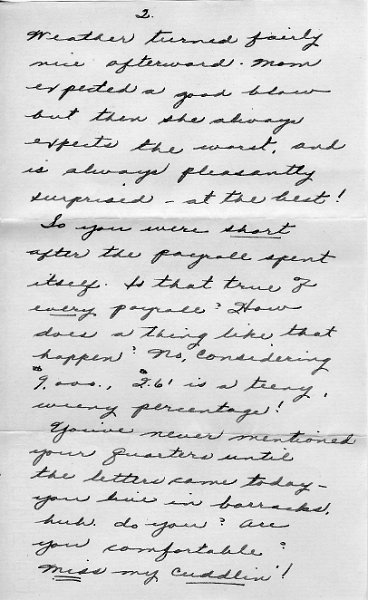 2.
Weather turned fairly
nice afterward. Mom
expected a good blow
but then she always
expects the worst, and
is always pleasantly
surprised - at the best!
So you were short
after the payroll spent
itself. Is that true of
every payroll? How
does a thing like that
happen? No, considering
$9,000., $2.61 is a teeny,
weeny percentage!
You've never mentioned
your quarters until
the letters came today -
you live in barracks,
huh, do you? Are
you comfortable?
Miss my cuddlin'!